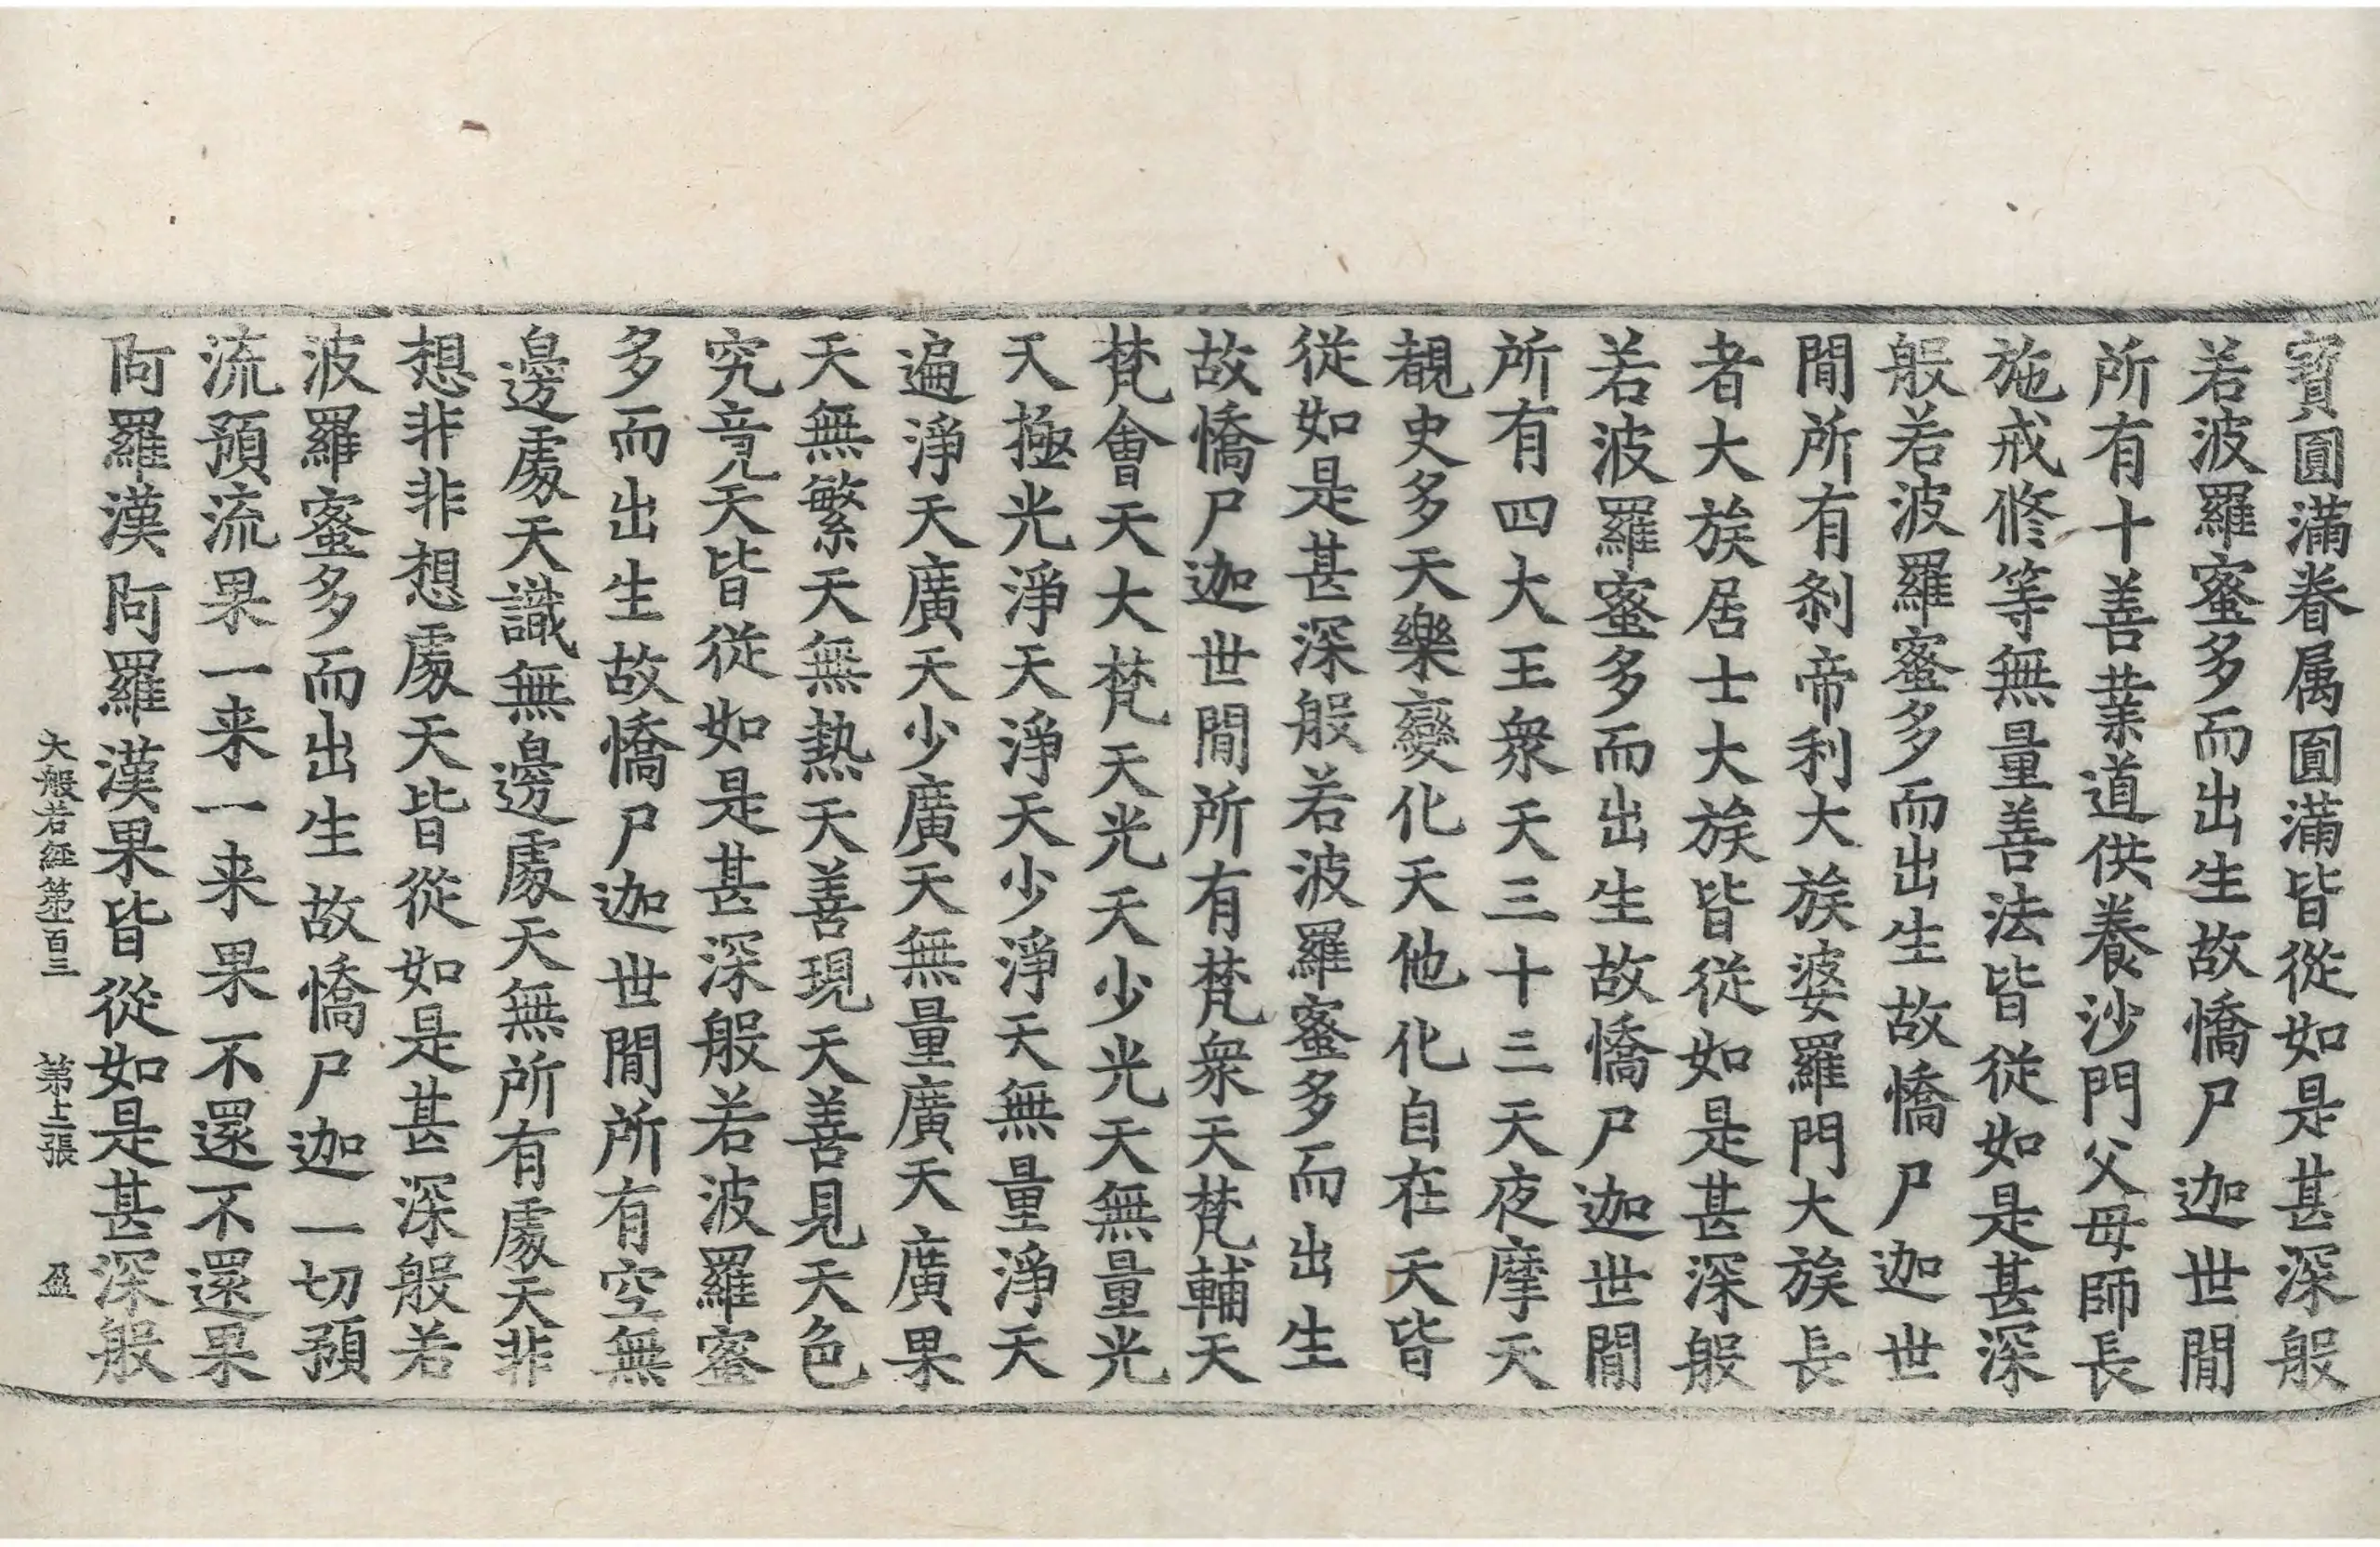 寳圓滿眷属圓滿皆從如是甚深般
若波羅蜜多而出生故憍尸迦世間
所有十善業道供養沙門父母師長
施戒修等無量善法皆従如是甚深
般若波羅蜜多而出生故憍尸迦世
間所有刹帝利大族婆羅門大族長
者大族居士大族皆従如是甚深般
若波羅蜜多而出生故憍尸迦世間
所有四大王衆天三十三天夜摩天
覩史多天樂變化天他化自在天皆
從如是甚深般若波羅蜜多而出生
故憍尸迦世間所有梵衆天梵輔天
梵會天大梵天光天少光天無量光
天極光淨天淨天少淨天無量淨天
遍淨天廣天少廣天無量廣天廣果
天無繁天無熱天善現天善見天色
究竟天皆従如是甚深般若波羅蜜
多而出生故憍尸迦世間所有空無
邊處天識無邊處天無所有處天非
想非非想處天皆從如是甚深般若
波羅蜜多而出生故憍尸迦一切預
流預流果一来一来果不還不還果
阿羅漢阿羅漢果皆從如是甚深般
大般若経第一百三 第七張 盈